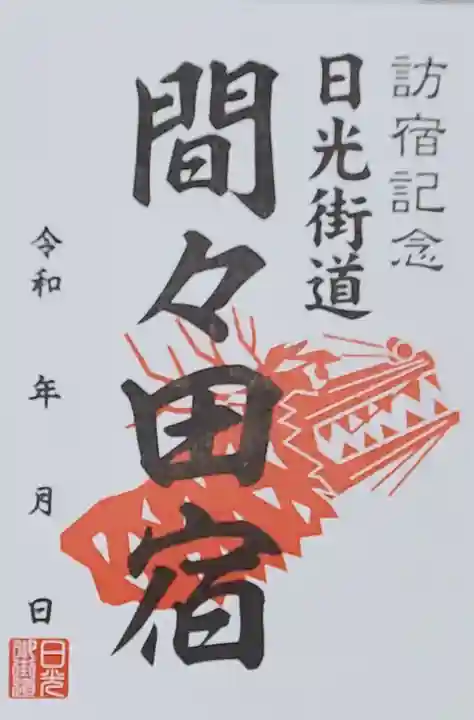 訪宿記念
日光街道
間々田宿
令和 年 月 日
日光街道